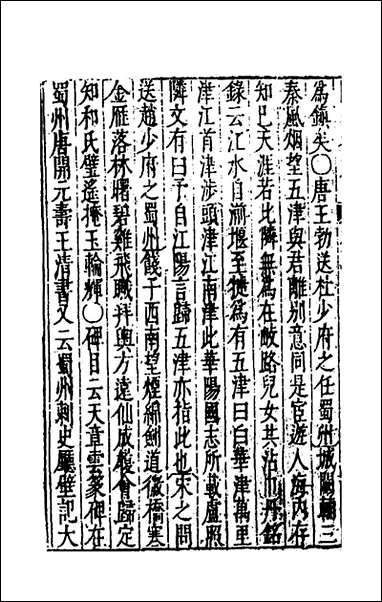 為鎮矣〇唐王勃送杜少府之任蜀州城闕輔三
秦風烟望五津與君離别意同是宦遊人海内存
知已天涯若比隣無為在岐路兒女共沾巾丹鉛
錄云江水自湔堰至犍為有五津曰白華津萬里
津江首津涉頭津江南津此華陽國志所載盧照
隣文有曰予自江陽言歸五津亦指此也宋之問
送趙少府之蜀州餞子西南望煙綿劍道微橋寒
金雁落林曙碧雞飛職拜輿方遠仙成履會歸定
知和氏璧遙掩玉輪輝〇碑目云天章雲篆碑在
蜀州唐開元壽王清書又云蜀州刺史廳壁記大